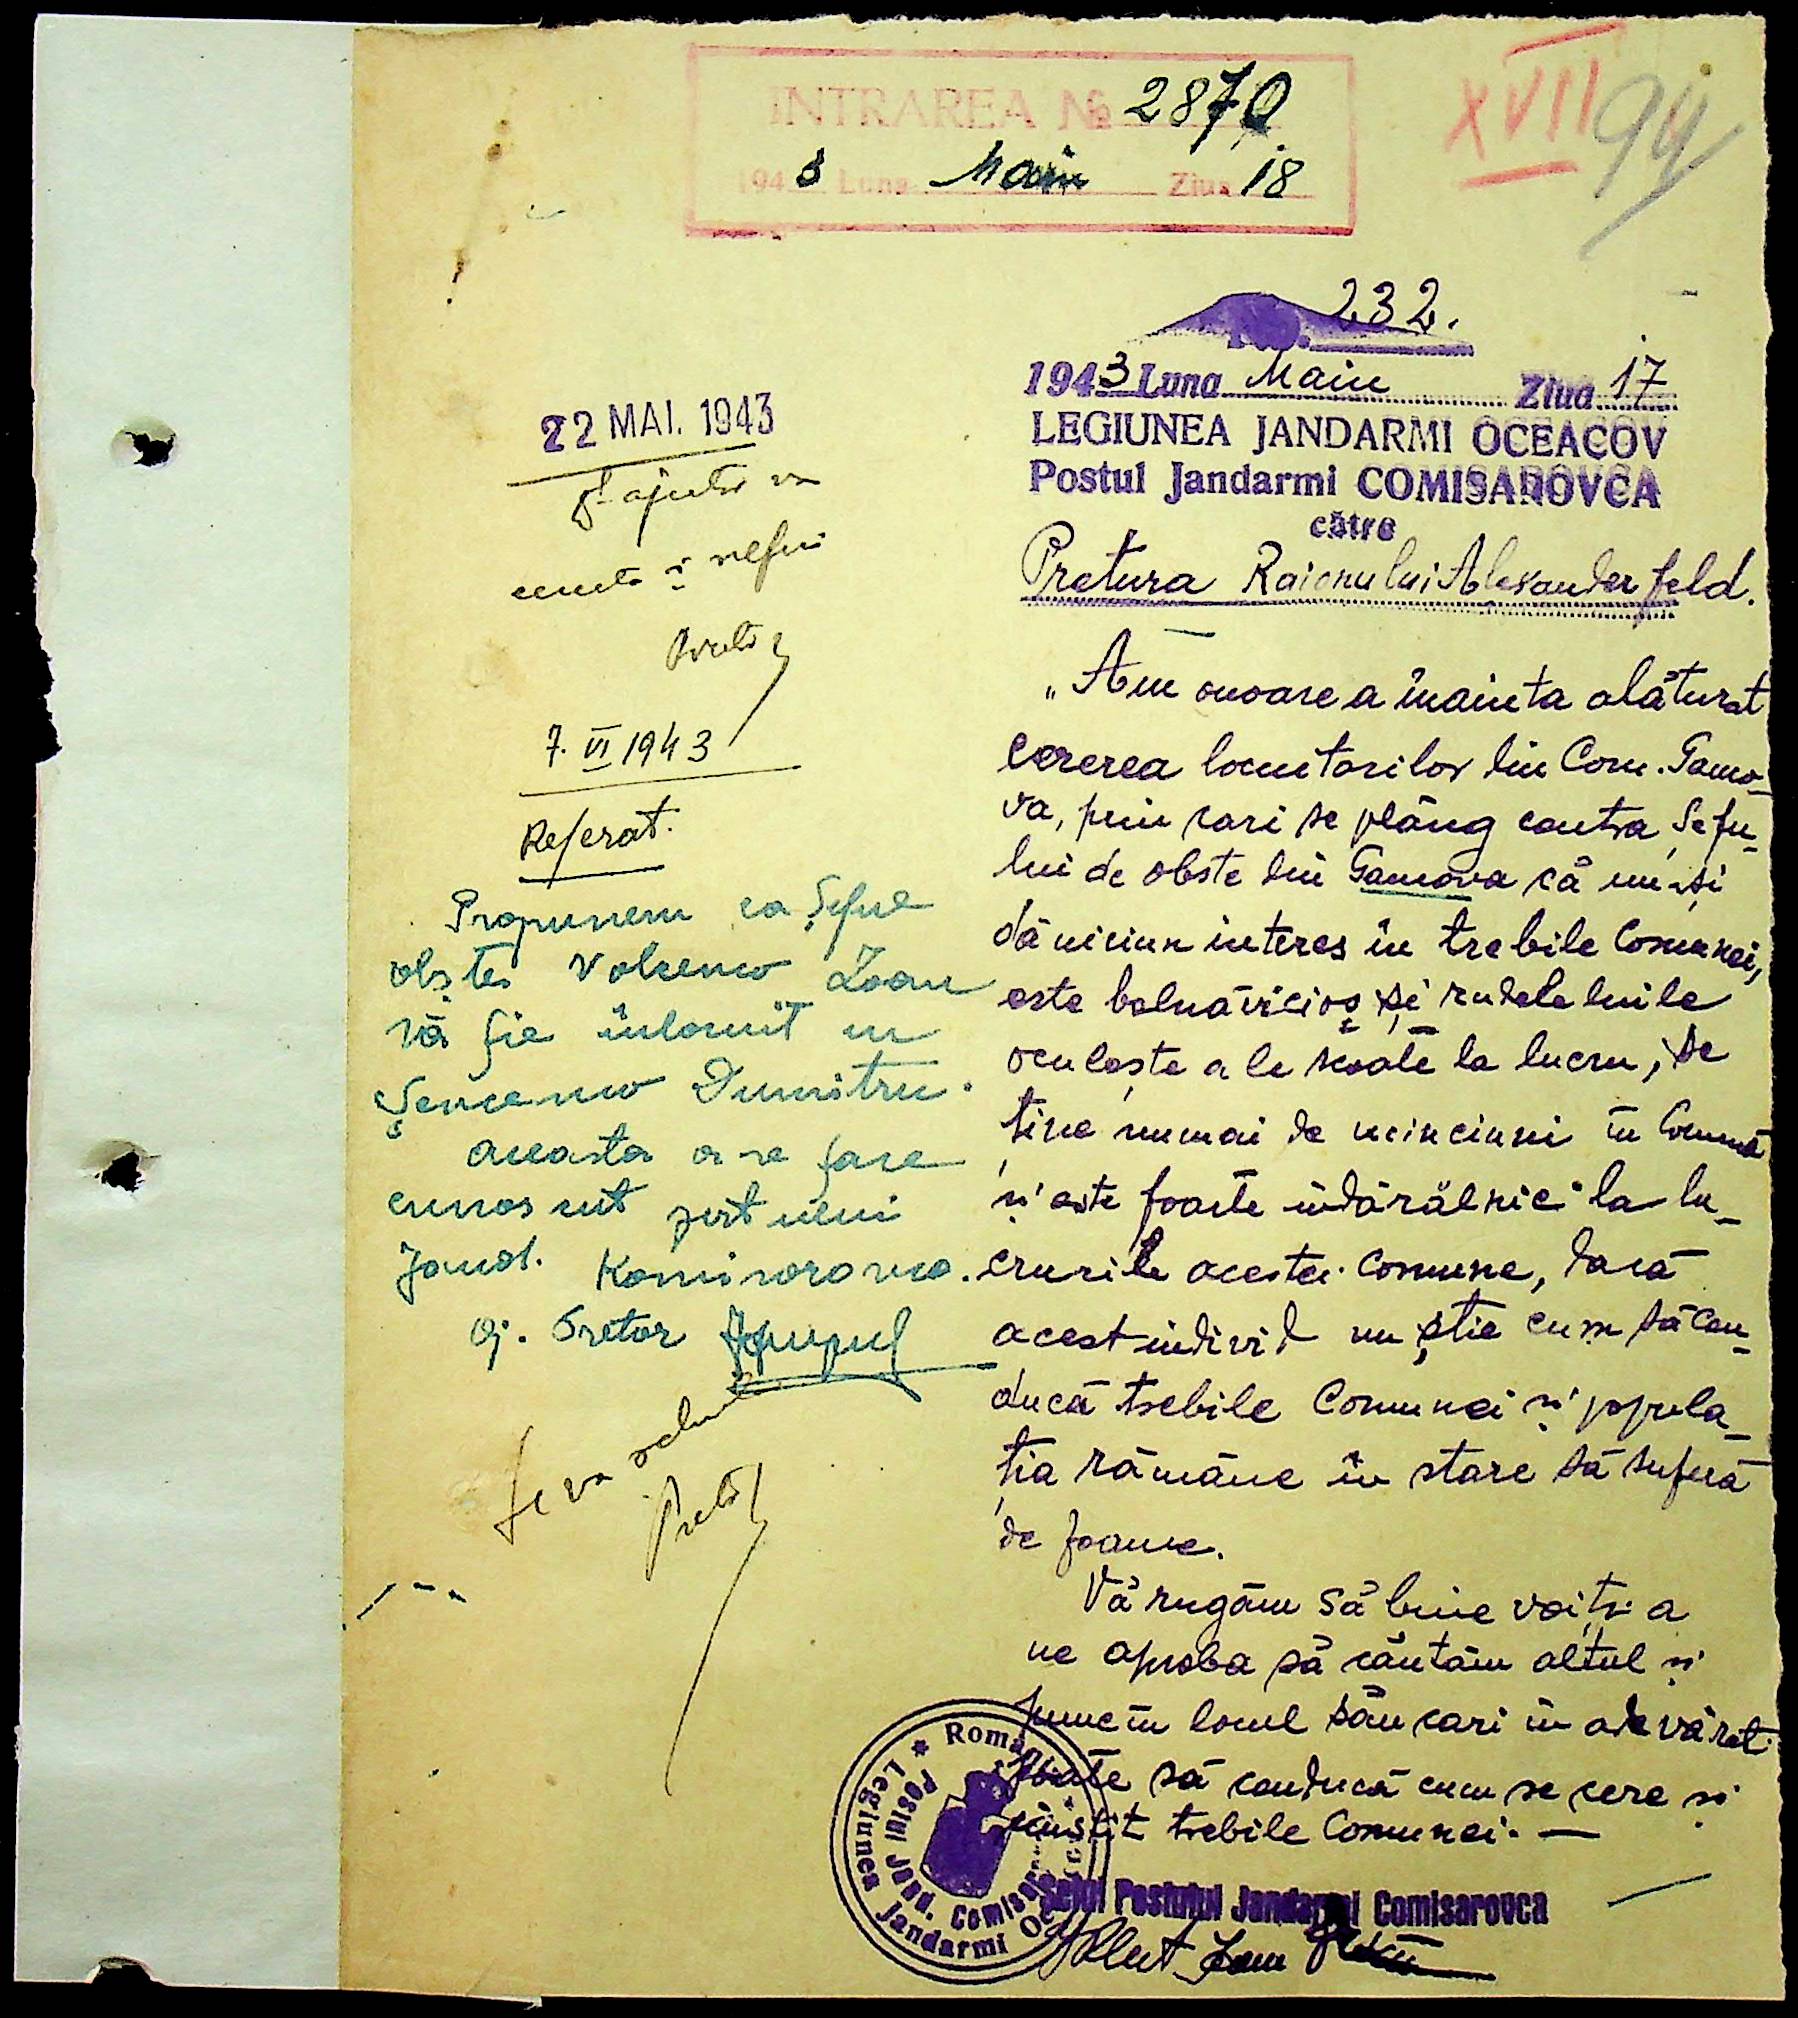 INTRAREA № 2870
1943 Luna Maiu Ziua 18
XVII
94
232.
1943 Luna Maiu Ziua 17
LEGIUNEA JANDARMI OCEACOV
Postul Jandarmi COMISAROVCA
către
Pretura Raionului Alexanderfeld.
„Am onoare a înainta alăturat
cererea locuitorilor din Com. Gamo-
va, prin cari se plâng contra Șefu-
lui de obste din Gamova că nu-și
dă niciun interes în trebile Comunei,
este bolnăvicios și rudele lui le
oculește a le scoate la lucru, se
ține numai de minciuni în Comună
și este foarte îndărălnic la lu-
crurile acestei Comune, dacă
acest individ nu știe cum să con-
ducă trebile Comunei și popula-
ția rămâne în stare să sufere
de foame.
Vă rugăm să bine voiți a
ne aproba să căutăm altul și
pune în locul său cari în adevărat
poate să conducă cum se cere și
cinstit trebile Comunei. —
Șeful Postului Jandarmi Comisarovca
Plut. Ioan
Legiunea Jandarmi
Postul Jand. Comisarovca
22 MAI. 1943
ajutor
7. VI 1943
Referat.
Propunem ca Șeful
obștei Volcenco Ioan
să fie înlocuit cu
Șevcenco Dumitru.
Aceasta a se face
cunoscut postului
Jand. Komisarovca.
Aj. Pretor
Se va
Pretor